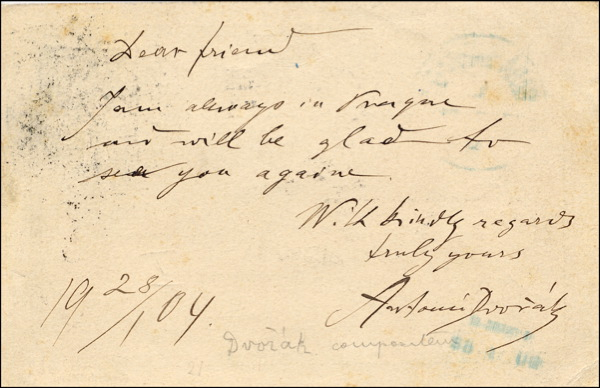 Dear friend
I am always in Prague
and will be glad to
see you againe.
With kindly regards
truly yours
Antonín Dvořák
19 28/1 04.
Dvořák compositeur